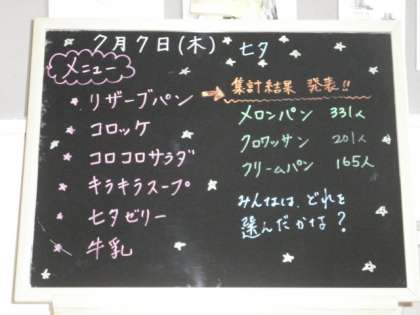 7月7日(木) 七夕
メニュー
リザーブパン → 集計結果 発表!!
コロッケ
コロコロサラダ
キラキラスープ
七夕ゼリー
牛乳
メロンパン 331人
クロワッサン 201人
クリームパン 165人
みんなは、どれを
選んだかな?